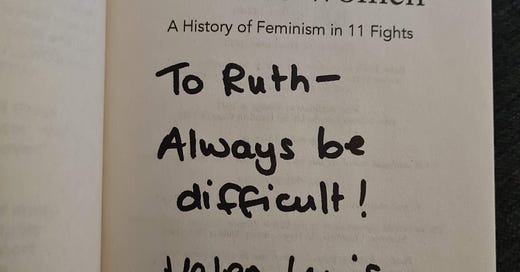 Women
A History of Feminism in 11 Fights
To Ruth–
Always be
difficult!